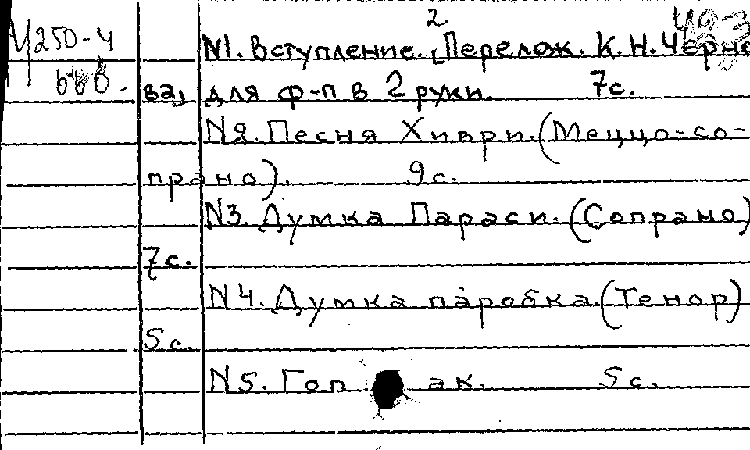 2
Ц250-4 N1. Вступление. [Перелож. К.Н. Черно
ва, для ф-п в 2 руки. 7с.
N2. Песня Хиври. (Меццо-со-
прано). 9с.
N3. Думка Параси. (Сопрано)
7с.
N4. Думка паробка. (Тенор)
5с.
N5. Гоп ак. 5с.